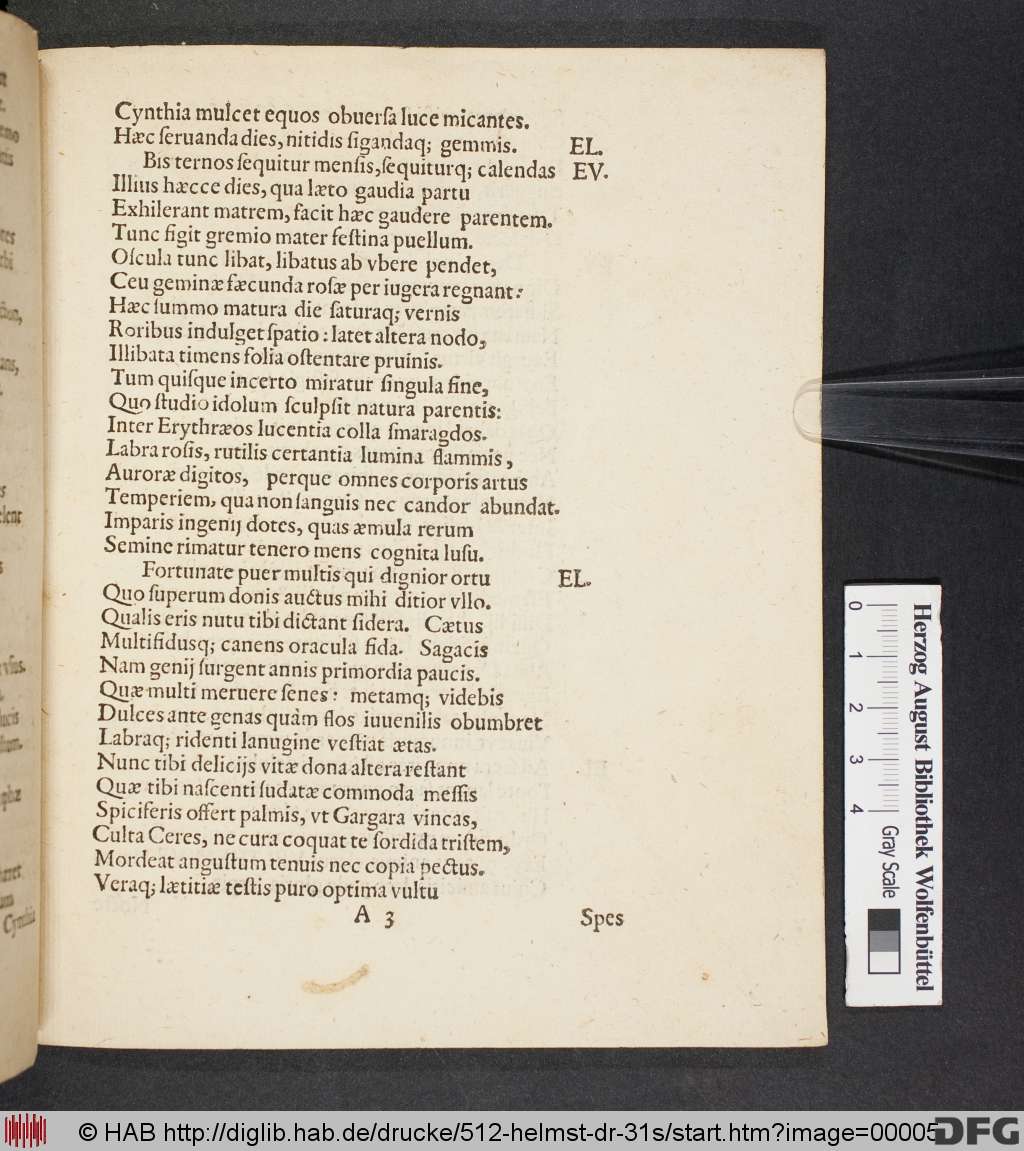 Cynthia mulcet equos obuerſa luce micantes.
Hæc ſeruanda dies, nitidis ſigandaq; gemmis. EL.
Bis ternos ſequitur menſis, ſequiturq; calendas EV.
Illius hæcce dies, qua læto gaudia partu
Exhilerant matrem, facit hæc gaudere parentem.
Tunc figit gremio mater feſtina puellum.
Oſcula tunc libat, libatus ab vbere pendet,
Ceu geminæ fæcunda roſæ per iugera regnant:
Hæc ſummo matura die ſaturaq; vernis
Roribus indulget ſpatio: latet altera nodo,
Illibata timens folia oſtentare pruinis.
Tum quiſque incerto miratur ſingula fine,
Quo ſtudio idolum ſculpſit natura parentis:
Inter Erythræos lucentia colla ſmaragdos.
Labra roſis, rutilis certantia lumina flammis,
Auroræ digitos, perque omnes corporis artus
Temperiem, qua non ſanguis nec candor abundat.
Imparis ingenij dotes, quas æmula rerum
Semine rimatur tenero mens cognita luſu.
Fortunate puer multis qui dignior ortu EL.
Quo ſuperum donis auctus mihi ditior vllo.
Qualis eris nutu tibi dictant ſidera. Cætus
Multifidusq; canens oracula fida. Sagacis
Nam genij ſurgent annis primordia paucis.
Quæ multi meruere ſenes: metamq; videbis
Dulces ante genas quàm flos iuuenilis obumbret
Labraq; ridenti lanugine veſtiat ætas.
Nunc tibi delicijs vitæ dona altera reſtant
Quæ tibi naſcenti ſudatæ commoda meſſis
Spiciferis offert palmis, vt Gargara vincas,
Culta Ceres, ne cura coquat te ſordida triſtem,
Mordeat anguſtum tenuis nec copia pectus.
Veraq; lætitiæ teſtis puro optima vultu
A 3 Spes
Cynthia
0 1 2 3 4
Gray Scale
Herzog August Bibliothek Wolfenbüttel
© HAB http://diglib.hab.de/drucke/512-helmst-dr-31s/start.htm?image=00005
DFG